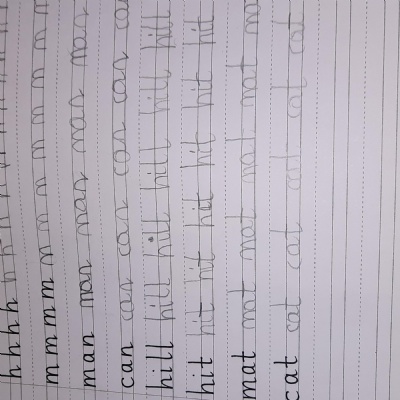 h h h h h h h
m m m m m m m m m m m
man man man man man
can can can can can can
hill hill hill hill hill hill hill
hit hit hit hit hit hit hit hit
mat mat mat mat mat
cat cat cat cat cat cat